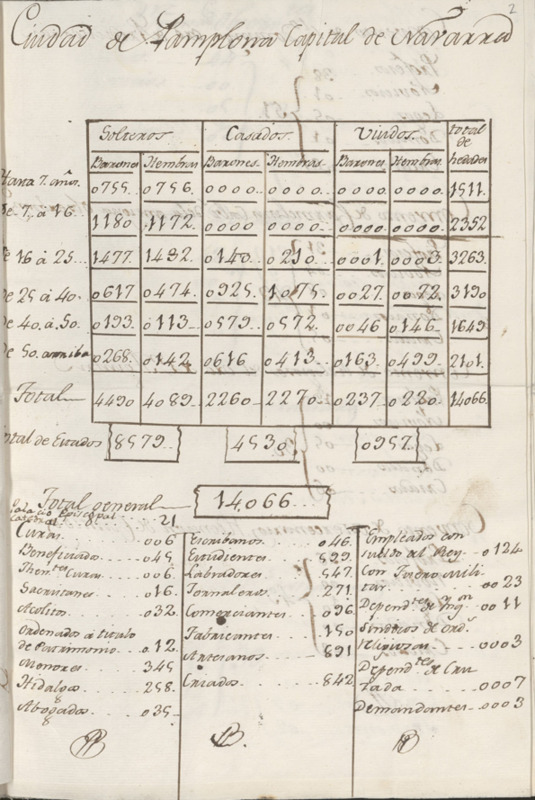 2
Ciudad de Pamplona Capital de Navarra
Solteros Casados Viudos total de hedades
Barones Hembras Barones Hembras Barones Hembras
Hasta 7. años. 0755. 0756. 0000. 0000. 0000. 0000. 1511.
de 7, à 16. 1180 1172 0000 0000 0000 0000 2352
De 16 à 25 1477. 1432 0140 0210 0001 0003 3263.
de 25 à 40. 0617 0474 0925 1075 0027 0072 3190
de 40. à 50. 0193 0113 0579 0572 0046 0146 1649
de 50. arriba 0268. 0142 0616 0413 0163 0499 2101.
Total 4490 4089 2260 2270 0237 0220 14066.
total de Estados 8579 4530 0957
Total general 14.066
Palacio Episcopal 21
Curas 006
Beneficiado 045
Then.tes Curas 006
Sacristanes 016
Acolitos 032
Ordenados à titulo
de Patrimonio 012
Menores 345
Hidalgos 258.
Abogados 035
Escribanos 046
Estudientes 529.
Labradores 547
Jornaleros 271
Comerciantes 096
Fabricantes 150
Artesanos 891
Criados 842
Empleados con
sueldo al Rey 0124
Con Fuero Mili-
tar 0023
Depend.tes de Inq.on 0011
Sindicos de ord.s
religiosas 0003
Depend.tes de Cru
zada 0007
Demandantes 0003